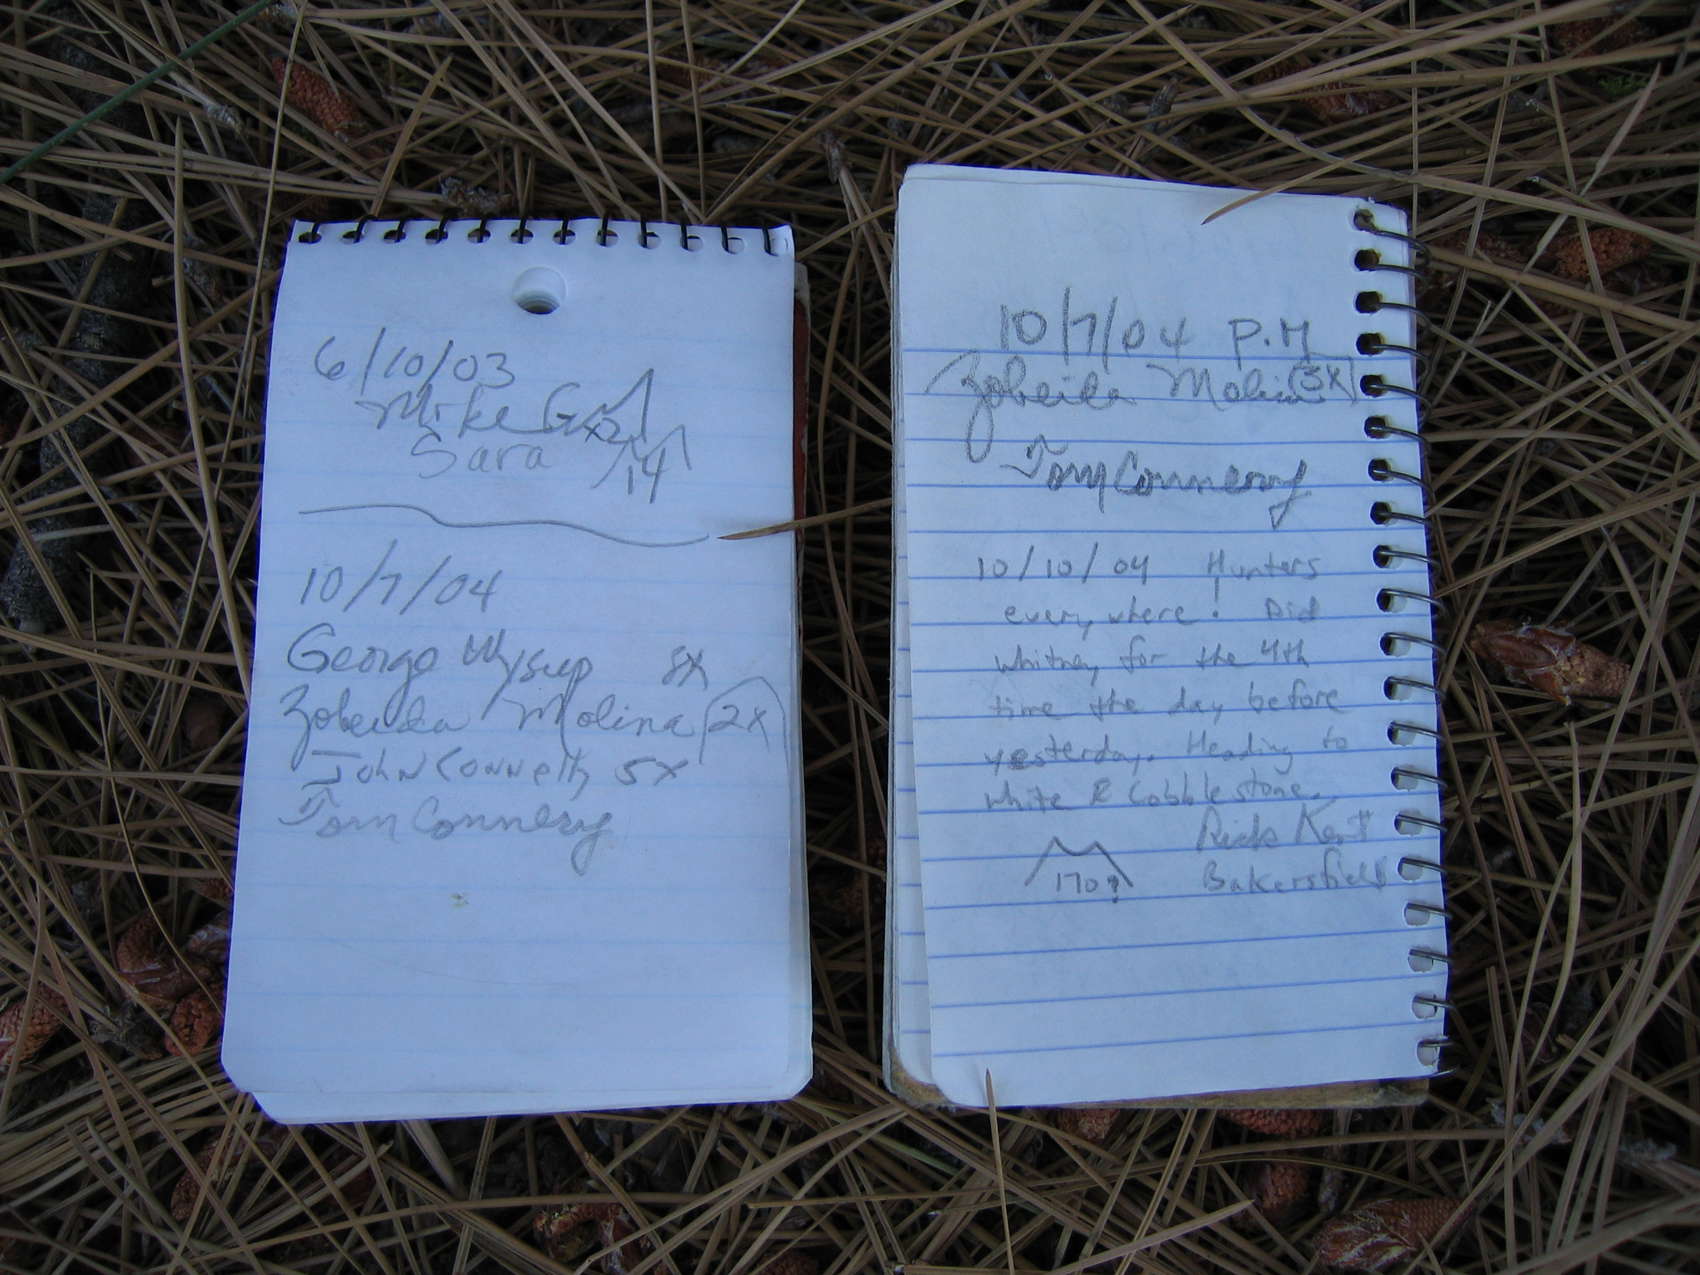 6/10/03
Mike
Sara 14
10/7/04
George Wysup 8X
Zobeida Molina 2X
John Connelly 5X
Tom Connery
10/7/04 P.M
Zobeida Molina 3X
Tom Connery
10/10/04 Hunters
everywhere! Did
Whitney for the 4th
time the day before
yesterday. Heading to
White & Cobblestone.
Rick Kent
170? Bakersfield